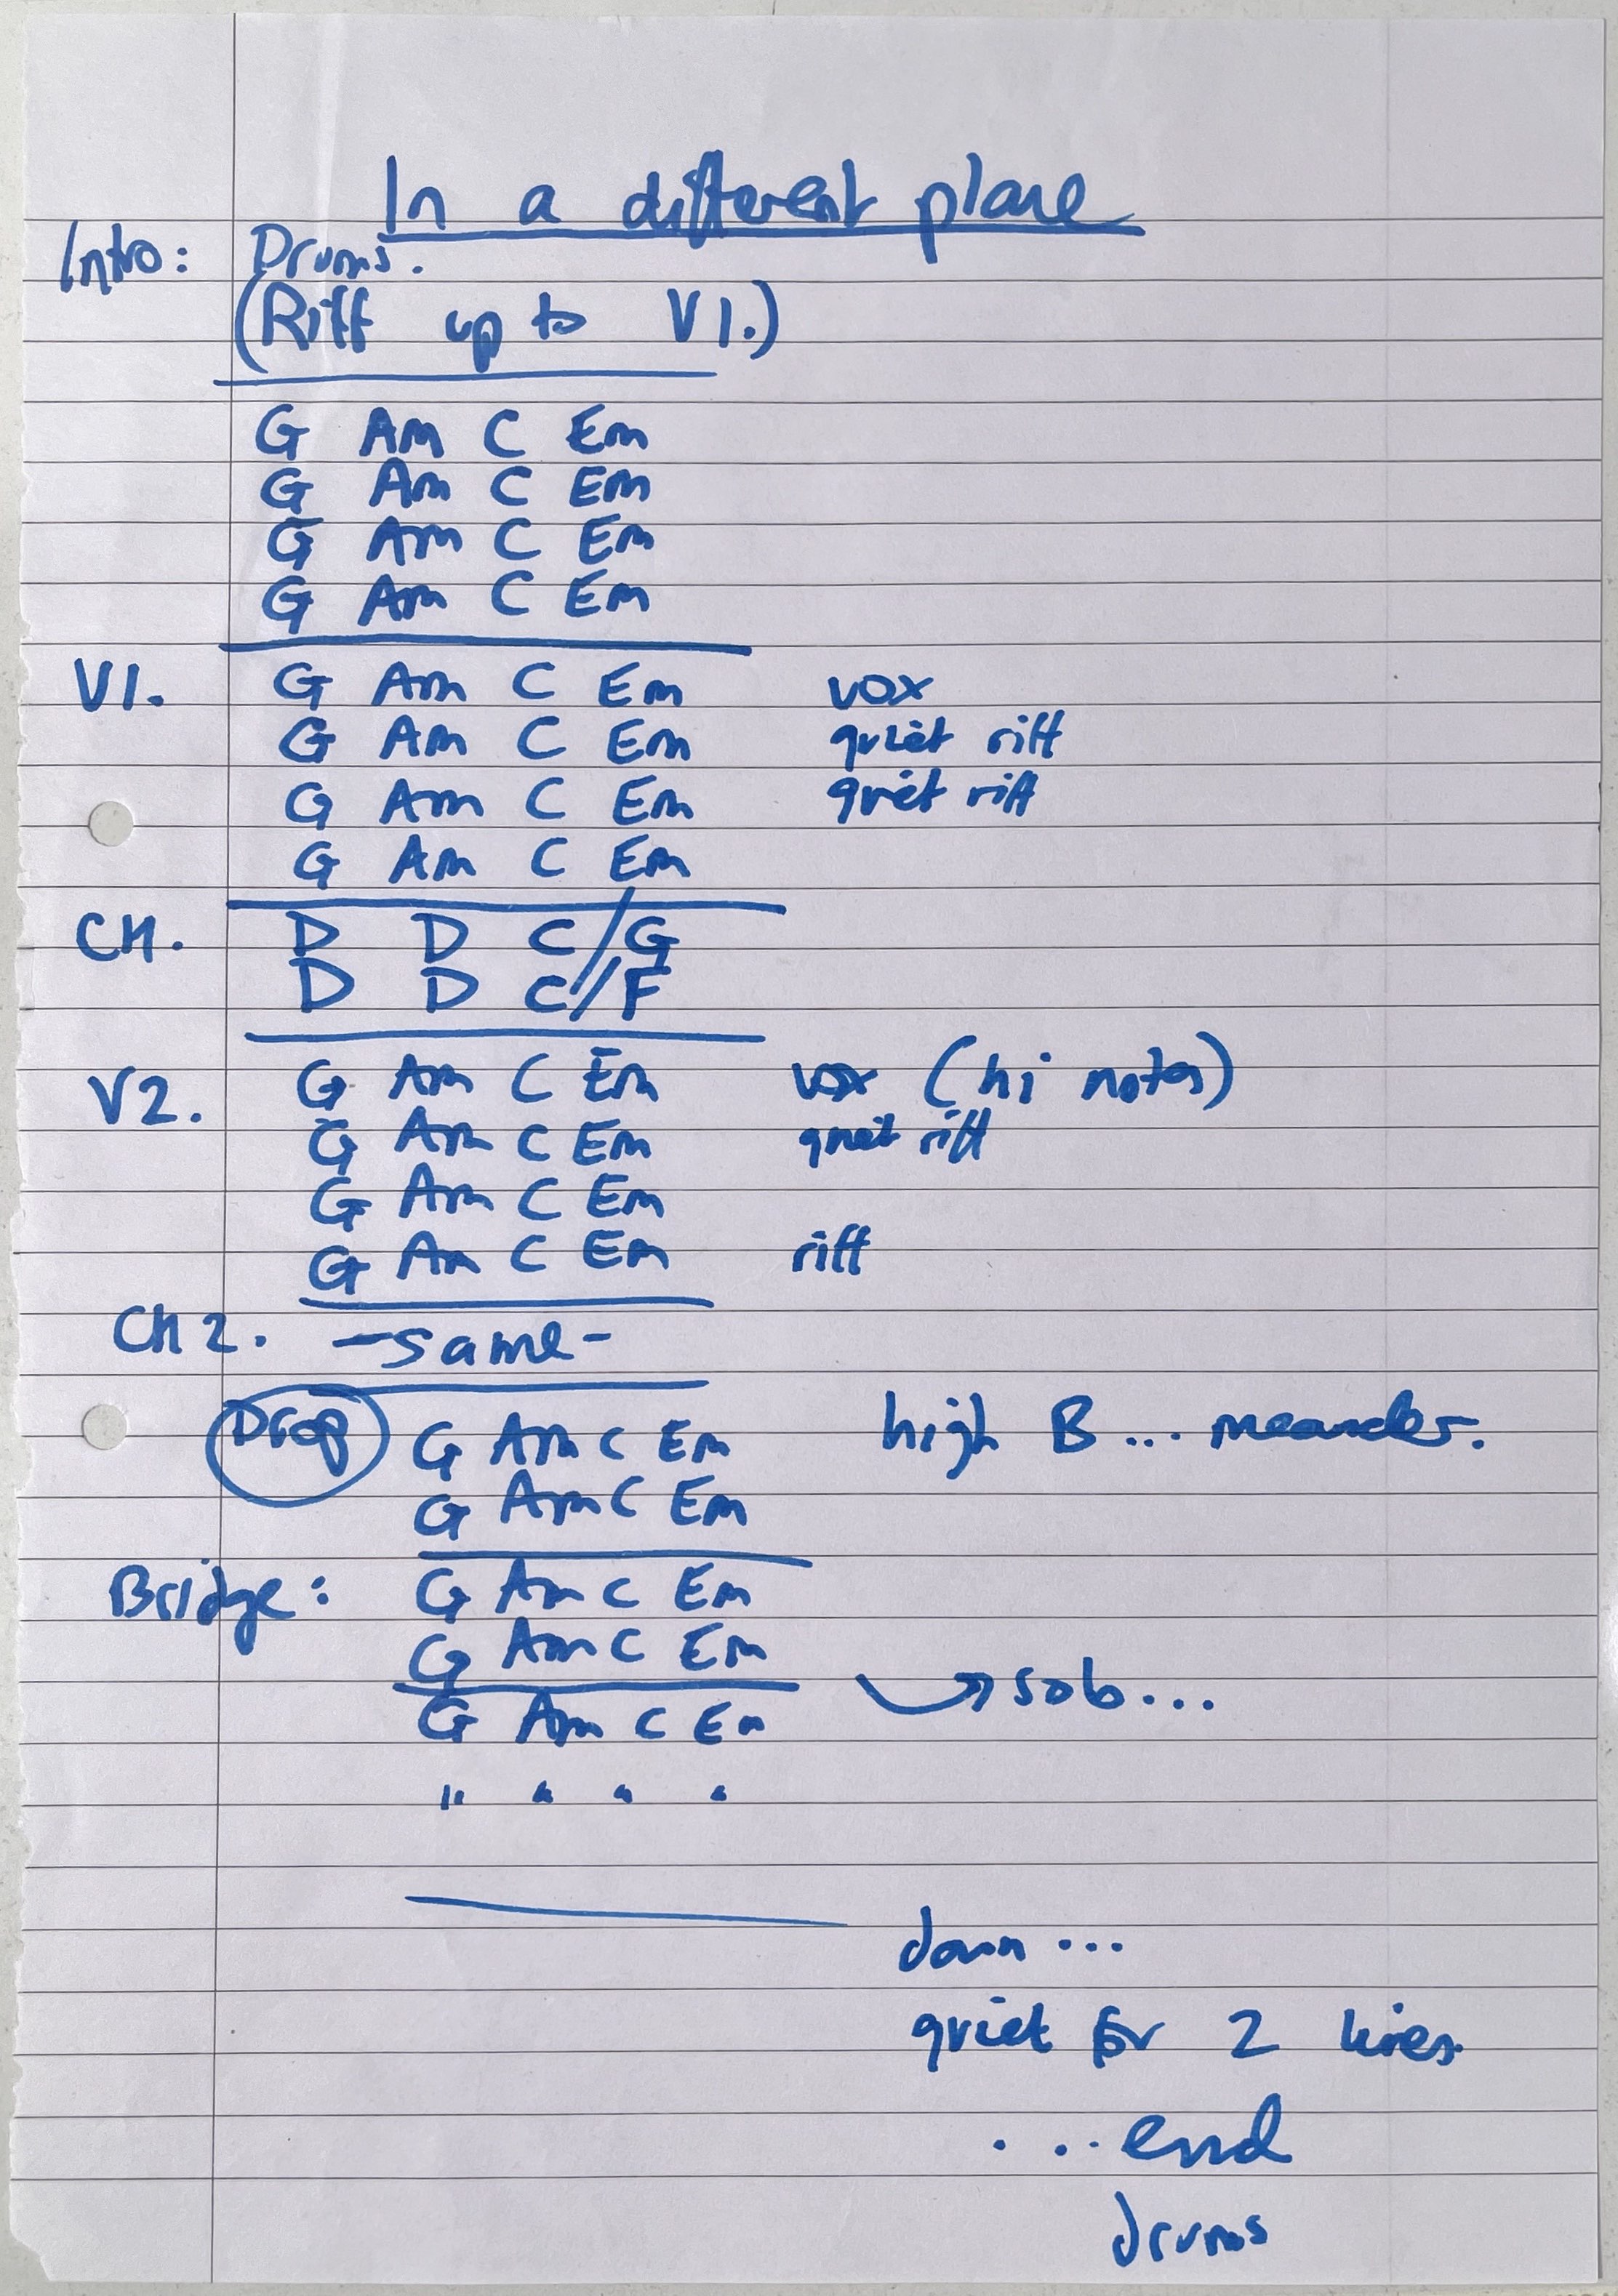 In a different plane
Intro: Drums.
(Riff up to V1.)
G Am C Em
G Am C Em
G Am C Em
G Am C Em
V1. G Am C Em vox
G Am C Em quiet riff
G Am C Em quiet riff
G Am C Em
CH. D D C/G
D D C//F
V2. G Am C Em vox (hi notes)
G Am C Em quiet riff
G Am C Em
G Am C Em riff
CH 2. -same-
Drop G Am C Em high B... meander.
G Am C Em
Bridge: G Am C Em
G Am C Em
solo...
G Am C Em
" " " "
down ...
quiet for 2 lines.
...end
drums